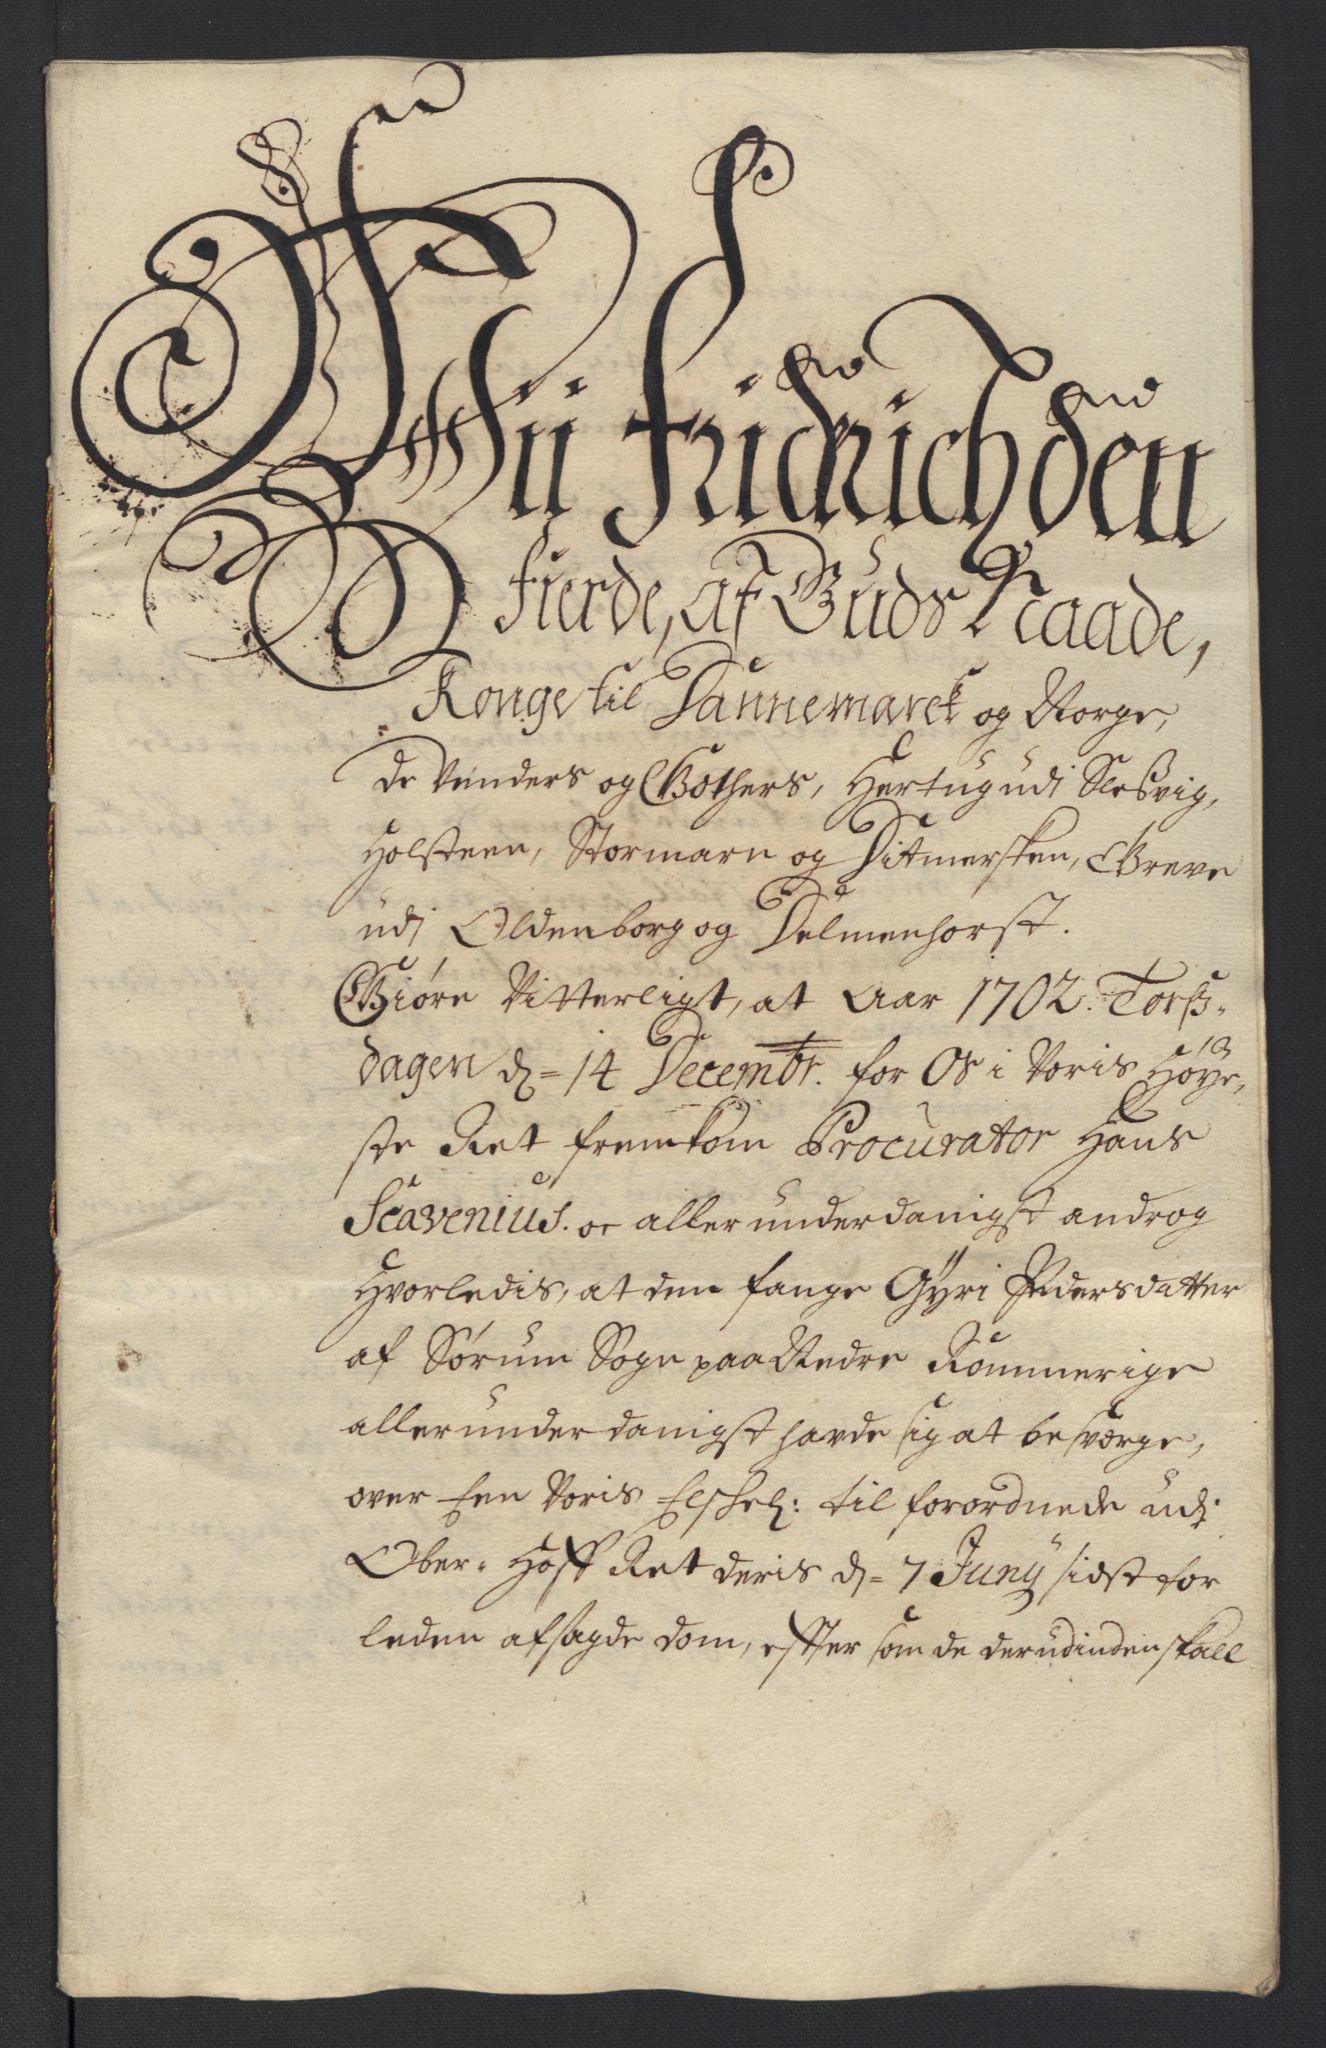 Wii Fridrich den
Fierde, af Guds Naade,
Konge til Dannemarck og Norge,
de Venders og Gothers, Hertug udi Slesvig,
Holsteen, Stormarn og Ditmersken, Greve
udi Oldenborg og Delmenhorst.
Giøre Vitterligt, at Aar 1702. Torß-
dagen d= 14 Decembr. for Os i Voris Høye,
ste Ret fremkom Procurator Hans
Scavenius. oc allerunderdanigst androg
Hvorledis, at den fange Gÿri Pedersdatter
af Sørum Sogn paa Nedre Rommerige
allerunderdanigst havde sig at besværge,
over Een Voris Elskel: til forordnede udj
Ober- Hoff Ret deris d= 7 Junÿ sidst for
leden afsagde dom, efftersom de derudinden skall